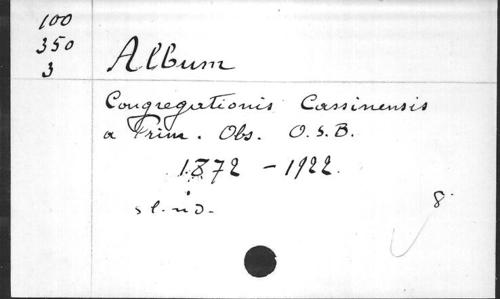 100
350
3
Album
Congregationis Cassinensis
a Prim. Obs. O.S.B.
1872 - 1922.
s l. n d.
8.